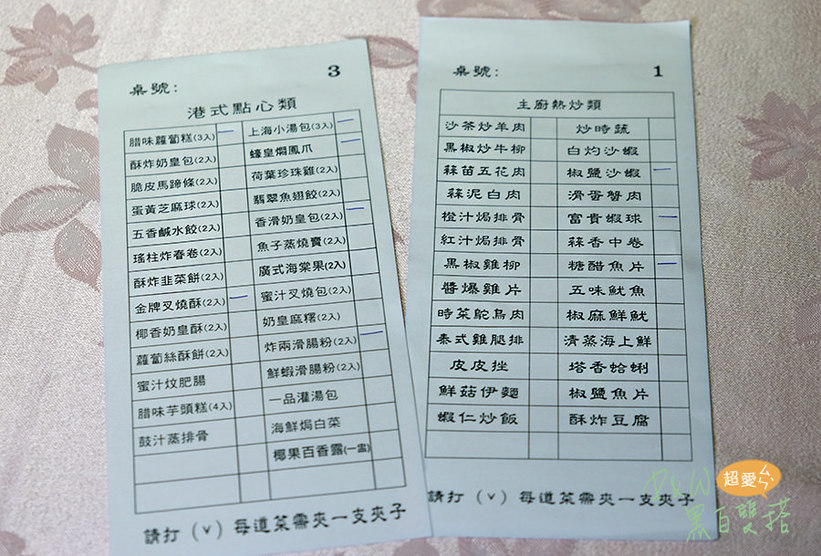 桌號： 3
港式點心類
腊味蘿蔔糕(3入) 上海小湯包(3入)
酥炸奶皇包(2入) 蠔皇燜鳳爪
脆皮馬蹄條(2入) 荷葉珍珠雞(2入)
蛋黃芝麻球(2入) 翡翠魚翅餃(2入)
五香鹹水餃(2入) 香滑奶皇包(2入)
瑤柱炸春卷(2入) 魚子蒸燒賣(2入)
酥炸韭菜餅(2入) 廣式海棠果(2入)
金牌叉燒酥(2入) 蜜汁叉燒包(2入)
椰香奶皇酥(2入) 奶皇麻糬(2入)
蘿蔔絲酥餅(2入) 炸兩滑腸粉(2入)
蜜汁炆肥腸 鮮蝦滑腸粉(2入)
腊味芋頭糕(4入) 一品灌湯包
鼓汁蒸排骨 海鮮焗白菜
椰果百香露(一盅)
請打（v）每道菜需夾一支夾子
桌號： 1
主廚熱炒類
沙茶炒羊肉 炒時蔬
黑椒炒牛柳 白灼沙蝦
蒜苗五花肉 椒鹽沙蝦
蒜泥白肉 滑蛋蟹肉
橙汁焗排骨 富貴蝦球
紅汁焗排骨 蒜香中卷
黑椒雞柳 糖醋魚片
醬爆雞片 五味魷魚
時菜鴕鳥肉 椒麻鮮魷
泰式雞腿排 清蒸海上鮮
皮皮挫 塔香蛤蜊
鮮菇伊麵 椒鹽魚片
蝦仁炒飯 酥炸豆腐
請打（v）每道菜需夾一支夾子
超愛ㄙㄙ
黑白雙搭